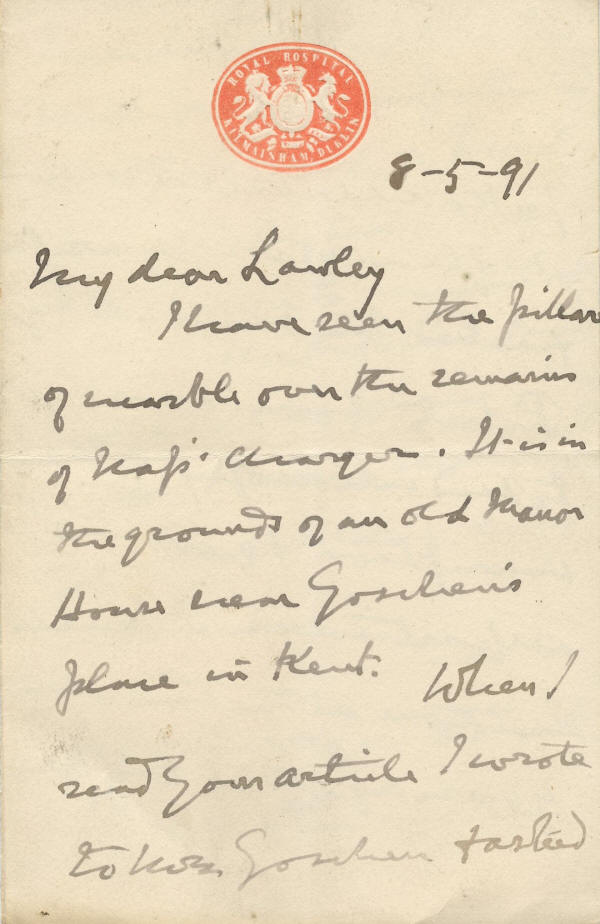 ROYAL HOSPITAL
KILMAINHAM, DUBLIN
8-5-91
My dear Lawley
I have seen the pillar
of marble over the remains
of Nap's charger. It is in
the grounds of an old Manor
House near Goschen's
place in Kent. When I
read your article I wrote
to Mrs. Goschen & asked